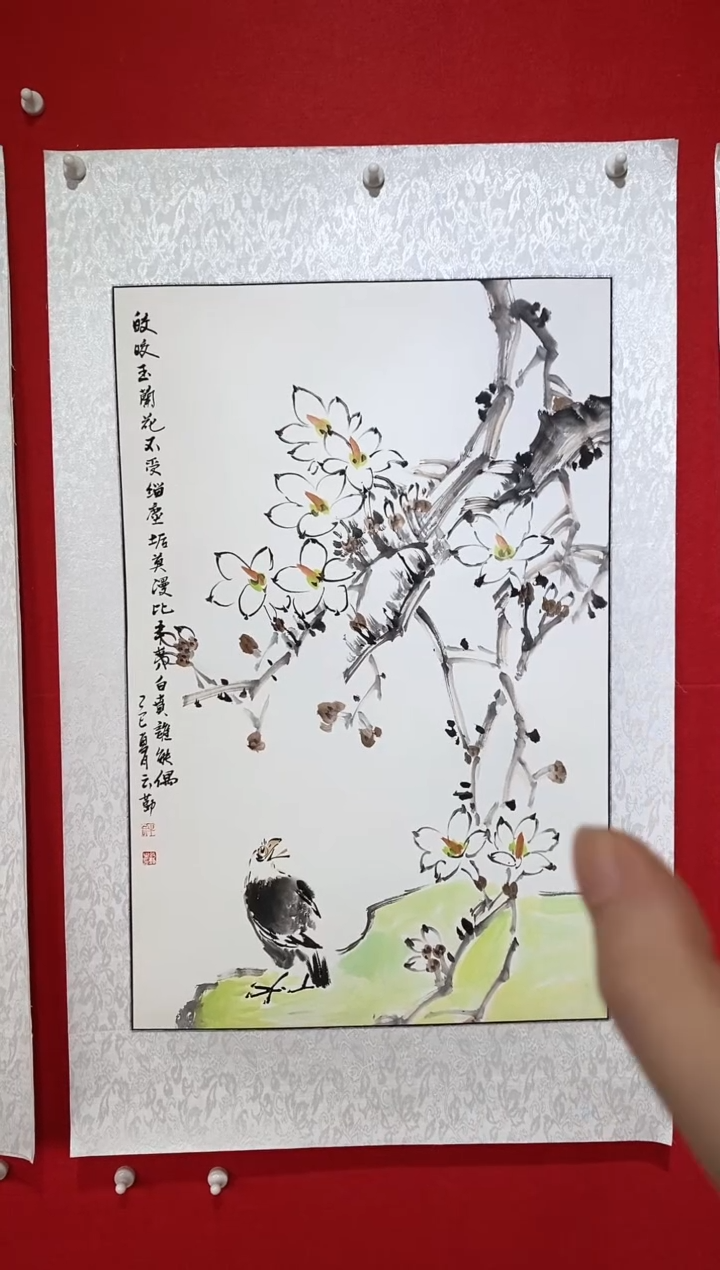 皎皎玉蘭花不受緇塵垢莫漫比辛荑白賁誰能偶
乙巳夏月云